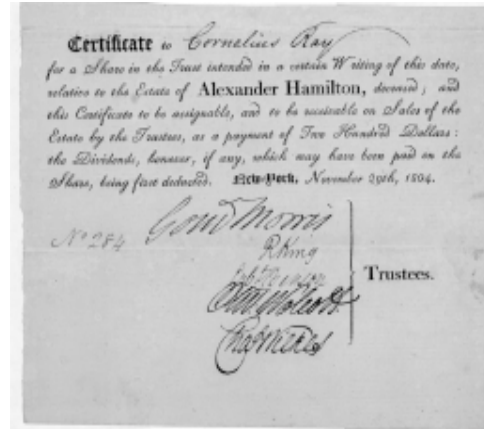 Certificate to Cornelius Ray
for a Share in the Trust intended in a certain Writing of this date,
relative to the Estate of Alexander Hamilton, deceased; and
this Certificate to be assignable, and to be receivable on Sales of the
Estate by the Trustees, as a payment of Two Hundred Dollars:
the Dividends, however, if any, which may have been paid on the
Share, being first deducted. New-York, November 29th, 1804.
Gouv Morris
No 284
R King
Trustees.
Oliv Wolcott
Chas Wilkes